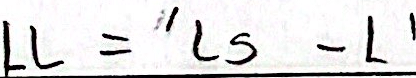 LL = 'Ls - L'